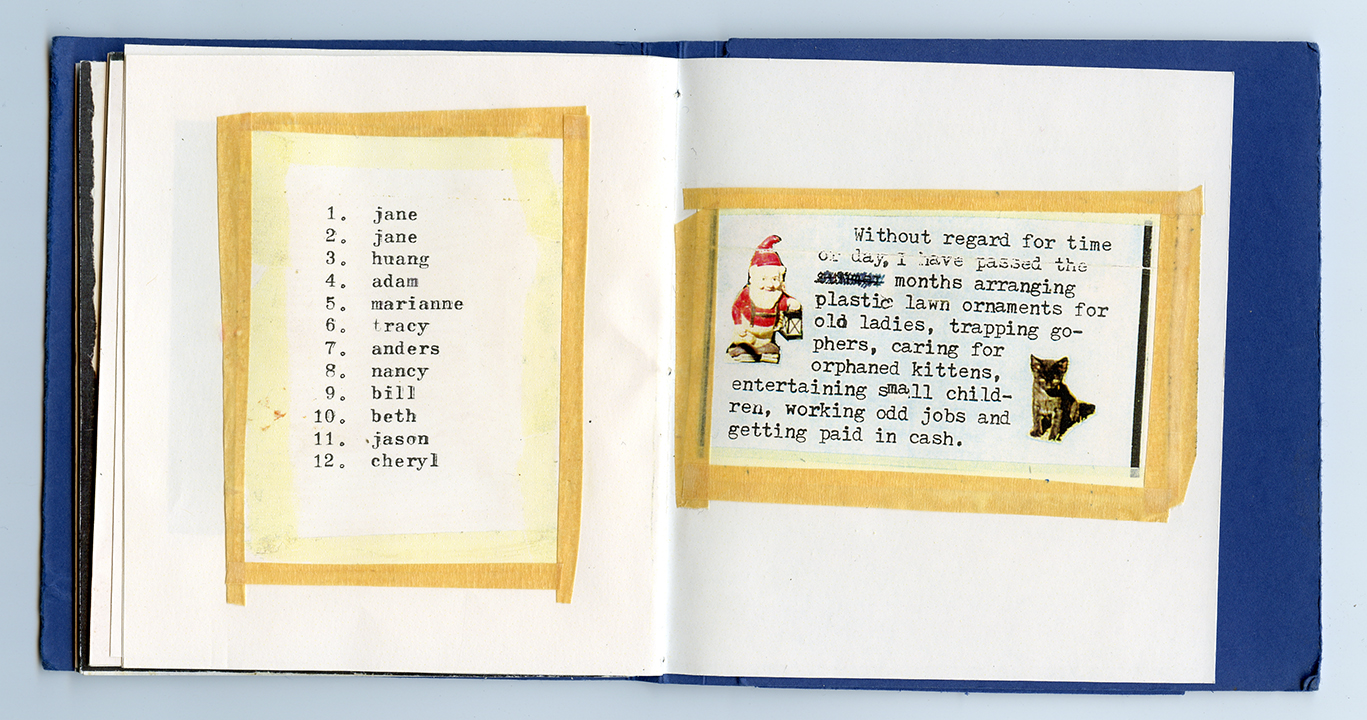 1. jane
2. jane
3. huang
4. adam
5. marianne
6. tracy
7. anders
8. nancy
9. bill
10. beth
11. jason
12. cheryl
Without regard for time
or day, I have passed the
months arranging
plastic lawn ornaments for
old ladies, trapping go-
phers, caring for
orphaned kittens,
entertaining small child-
ren, working odd jobs and
getting paid in cash.